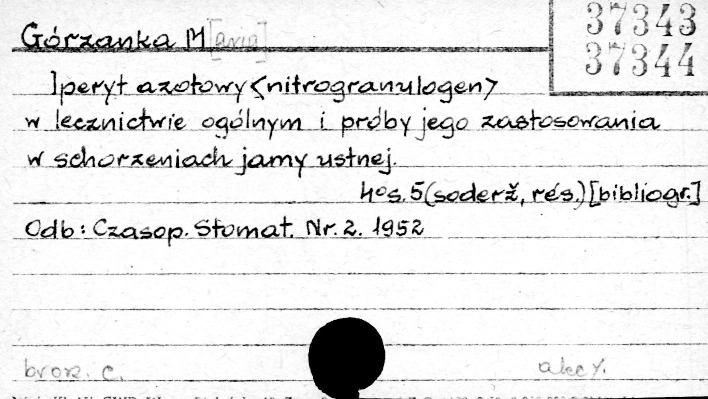 37343
37344
Górzanka M[aria]
Iperyt azotowy <nitrogranulogen>
w lecznictwie ogólnym i próby jego zastosowania
w schorzeniach jamy ustnej.
4° s. 5 (soderž, rés.) [bibliogr.]
Odb: Czasop. Stomat. Nr. 2. 1952
brosz. c. akc y.